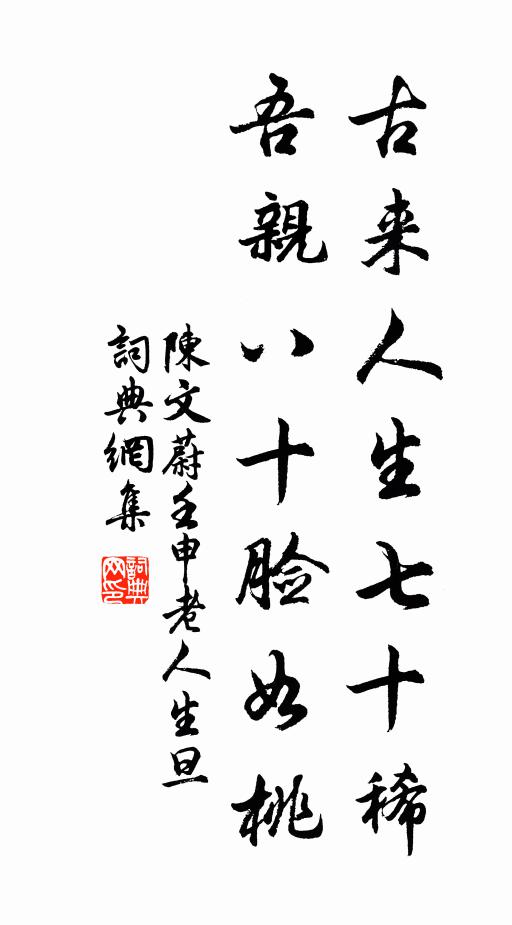 古来人生七十稀
吾親八十脸如桃
陳文蔚壬申老人生旦
詞典網集
詞典网印